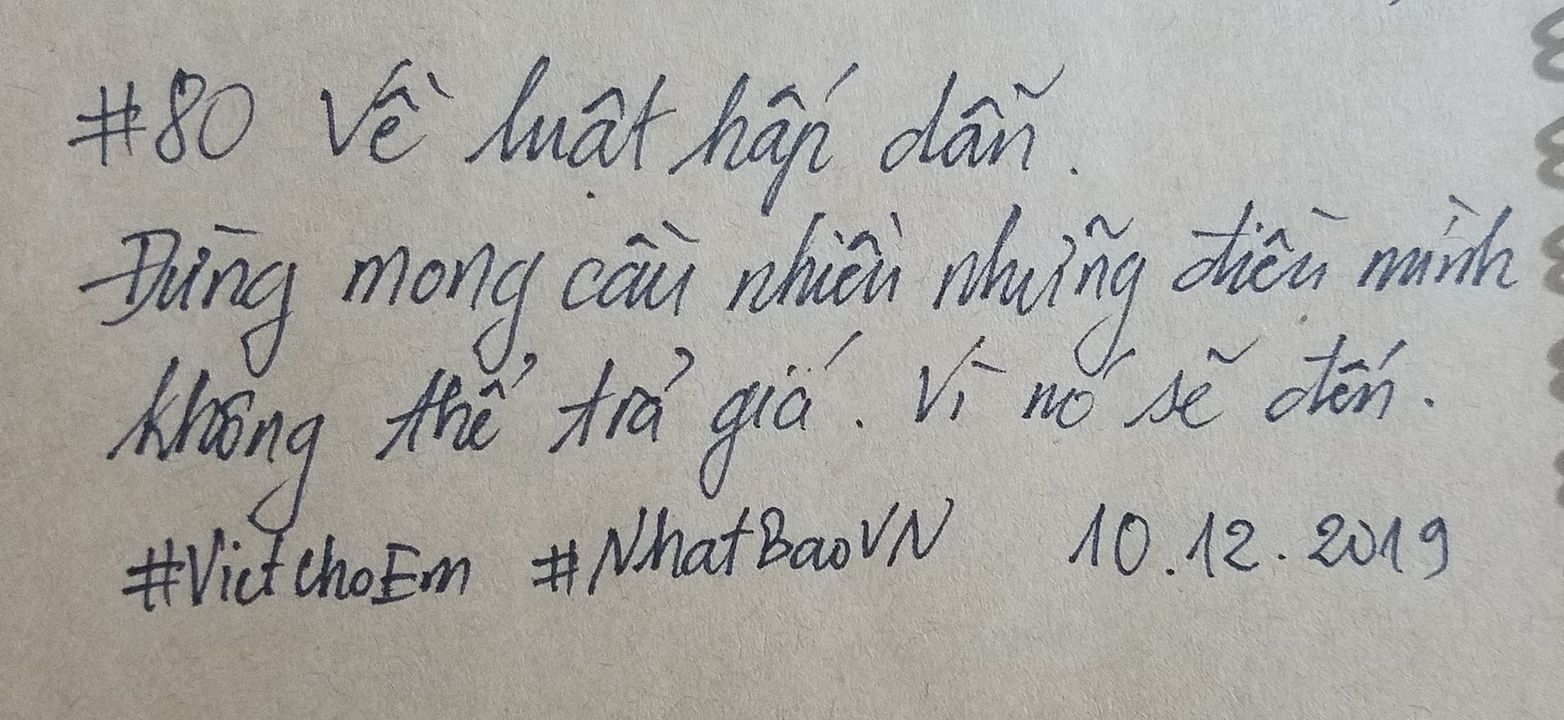 #80 Về luật hấp dẫn.
Đừng mong cầu nhiều những điều mình
không thể trả giá. Vì nó sẽ đến.
#VietchoEm #NhatBaoVN 10.12.2019